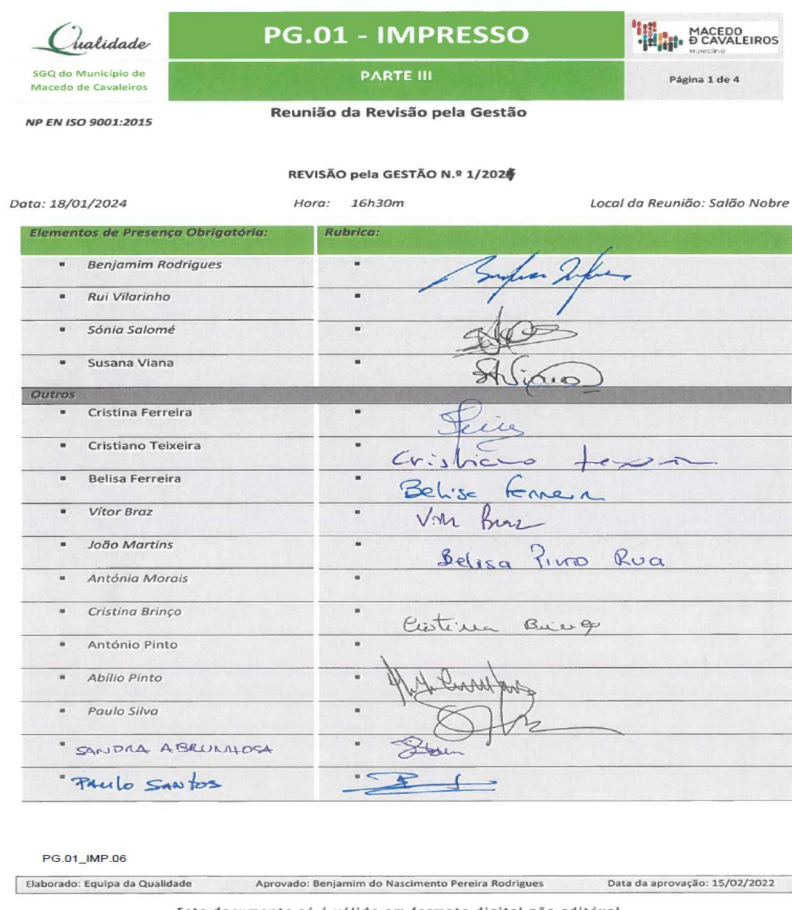 Qualidade
PG.01 - IMPRESSO
MACEDO
DE CAVALEIROS
MUNICÍPIO
SGQ do Município de
Macedo de Cavaleiros
PARTE III
Página 1 de 4
NP EN ISO 9001:2015
Reunião da Revisão pela Gestão
REVISÃO pela GESTÃO N.º 1/2024
Data: 18/01/2024 Hora: 16h30m Local da Reunião: Salão Nobre
Elementos de Presença Obrigatória: Rubrica:
▪ Benjamim Rodrigues ▪
▪ Rui Vilarinho ▪
▪ Sónia Salomé ▪
▪ Susana Viana ▪ SViana
Outros
▪ Cristina Ferreira ▪
▪ Cristiano Teixeira ▪ Cristiano Teixeira
▪ Belisa Ferreira ▪ Belisa Ferreira
▪ Vítor Braz ▪ Vítor Braz
▪ João Martins ▪ Belisa Pinto Rua
▪ Antónia Morais ▪
▪ Cristina Brinço ▪ Cristina Brinço
▪ António Pinto ▪
▪ Abílio Pinto ▪
▪ Paulo Silva ▪
▪ SANDRA ABRUNHOSA ▪
▪ PAULO SANTOS ▪
PG.01_IMP.06
Elaborado: Equipa da Qualidade Aprovado: Benjamim do Nascimento Pereira Rodrigues Data da aprovação: 15/02/2022
Este documento só é válido em formato digital não editável